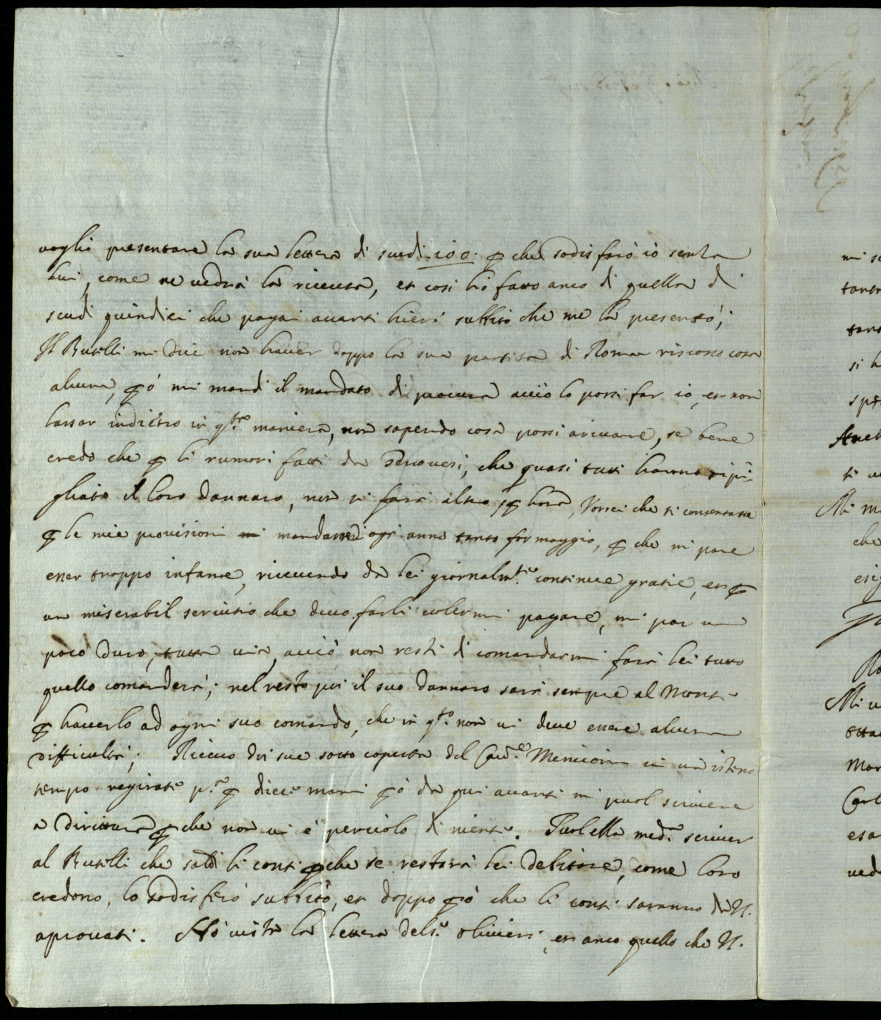 voglio presentare la sua lettera di scudi 100: ꝑ che sodisfarò io senza
lui, come ne vedrà la riceuta, et cosi hò fatto anco di quella di
scudi quindici che pagai auanti hieri subbito che me la presentò;
Il Buselli mi dice non hauer doppo la sua partita di Roma riscosso cosa
alcuna, ꝑò mi mandi il mandato di procura acciò lo possi far io, et non
lassar indietro in qsta maniera, non sapendo cosa possi ariuare, se bene
credo che ꝑ li rumori fatti da Genouesi, che quasi tutti hanno ripi-
gliato il loro dannaro, non si farà altro ꝑ hora, Vorrei che ti contentasse
ꝑ le mie prouisioni mandarmi ogni anno tanto formaggio, ꝑ che mi pare
esser troppo infame, riceuendo da lei giornalmte continue gratie, et ꝑ
un miserabil seruitio che deuo farli uolermi pagare, mi par un
poco duro, tutta uia acciò non resti di comandarmi farà lei tutto
quello comanderà; nel resto poi il suo dannaro sarà sempre al Monte
ꝑ hauerlo ad ogni suo comando, che in qsto non ui deue essere alcuna
difficultà; Riceuo doi sue sotto coperta del Caure in un istesso
tempo ꝑ dieci mani ꝑò da qui auanti mi puol scriuere
a dirittura ꝑ che non ui è pericolo di niente. Puol ella medma scriuer
al Buselli che saldi li conti ꝑche se restarà lei debitore, come loro
credono, lo sodisferò subbito, et doppo ꝑò che li conti saranno da V.
aprouati. Hò uista la lettera del Sr Oliuieri, et anco quello che V.
mi
tant

si h
spe

ti
Mi m
che

Mi

Mar
Carl
esa
ued